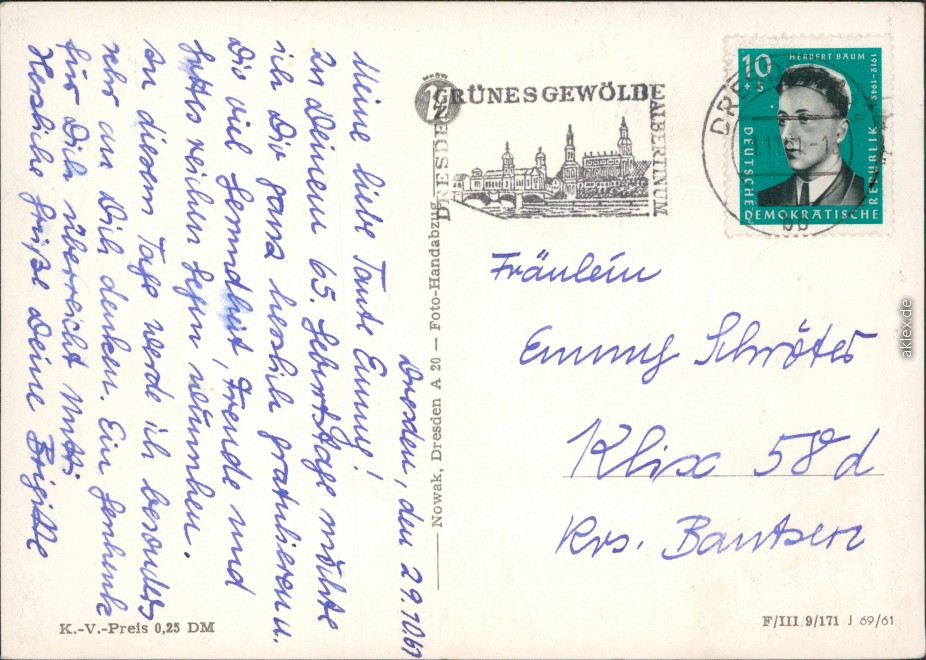 Dresden, den 29.10.61
Meine liebe Tante Emmy!
Zu Deinem 65. Geburtstage möchte
ich Dir ganz herzlich gratulieren u.
Dir viel Gesundheit, Freude und
Gottes reichen Segen wünschen.
An diesem Tage werde ich besonders
sehr an Dich denken. Ein Geschenk
für Dich überreicht Mutti.
Herzliche Grüße Deine Brigitte
K.-V.-Preis 0,25 DM
Nowak, Dresden A 20 — Foto-Handabzug
MKBW
DRESDEN
GRÜNES GEWÖLBE
ALBERTINUM
10
+ 5
HERBERT BAUM
1912-1942
DEUTSCHE
DEMOKRATISCHE
REPUBLIK
Fräulein
Emmy Schröter
Klix 58 d
Krs. Bautzen
F/III 9/171 J 69/61
aklex.de